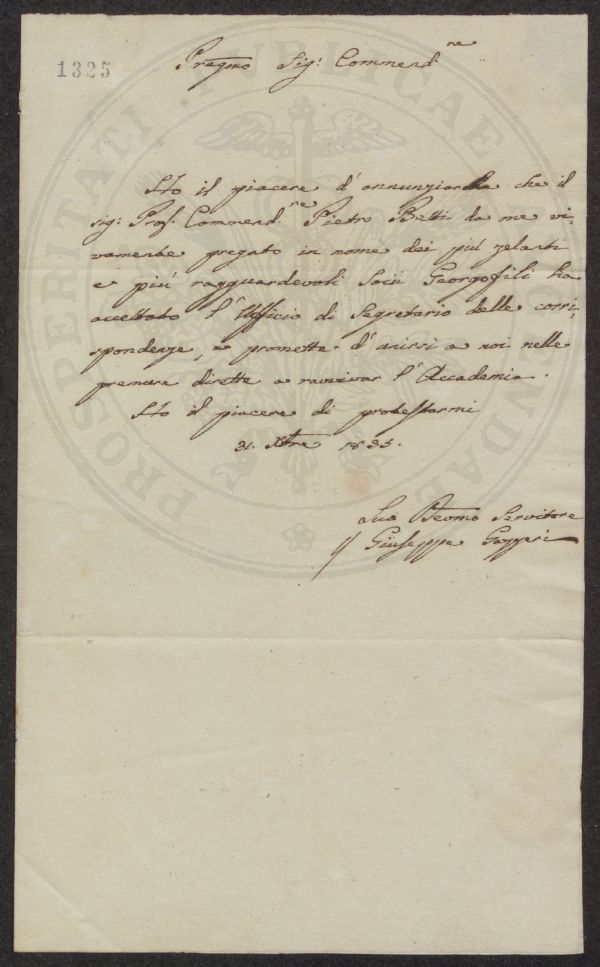 1325
Pregmo Sig: Commendne
Ho il piacere d'annunziarLe che il
sig: Prof. Commendne Pietro Betti da me vi-
vamente pregato in nome dei più zelanti
e più ragguardevoli Socii Georgofili ha
accettato l'Uffizio di Segretario delle corri-
spondenze, e promette d'unirsi a noi nelle
premure dirette a ravvivar l'Accademia.
Ho il piacere di protestarmi
31. Xbre 1835.
Suo Devmo Servitore
Giuseppe Gazzeri
PROSPERITATI PUBLICAE AUGENDAE